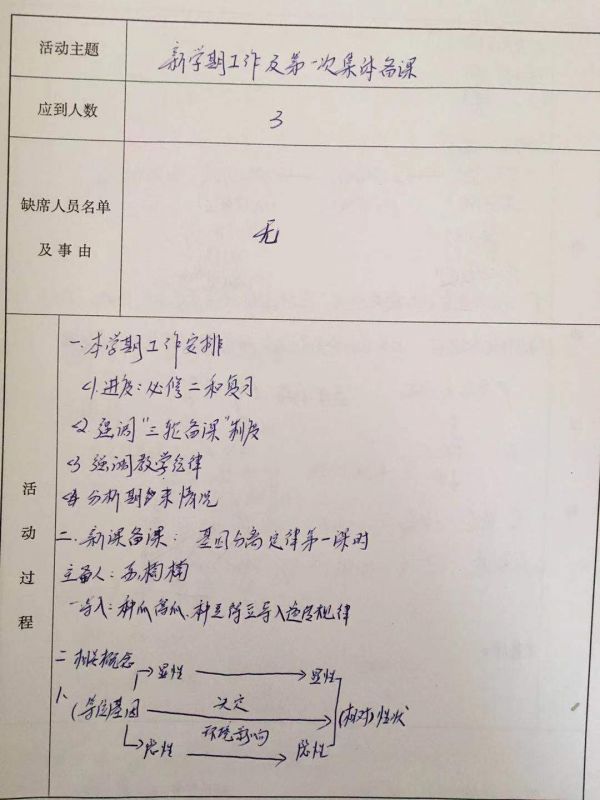 活动主题
新学期工作及第一次集体备课
应到人数
3
缺席人员名单
及事由
无
活动过程
一.本学期工作安排
<1.进度:必修二和复习
<2.强调"三轮备课"制度
<3 强调教学纪律
<4 分析期末情况
二.新课备课:基因分离定律第一课时
主备人:苏楠楠
一导入:种瓜得瓜、种豆得豆导入遗传规律
二相关概念
显性 显性
1、(等位)基因 决定 (相对)性状
环境影响
隐性 隐性